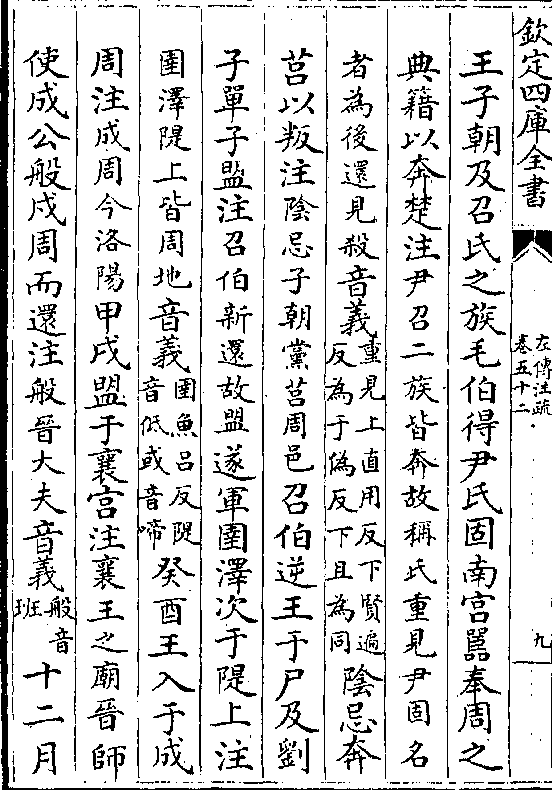 欽定四庫全書
左傳注疏
卷五十二
九
王子朝及召氏之族毛伯得尹氏固南宫嚚奉周之
典籍以奔楚注尹召二族皆奔故稱氏重見尹固名
者為後還見殺音義重見上直用反下賢遍
反為于偽反下且為同陰忌奔
莒以叛注陰忌子朝黨莒周邑召伯逆王于尸及劉
子單子盟注召伯新還故盟遂軍圉澤次于隄上注
圉澤隄上皆周地音義圉魚吕反隄
音低或音啼癸酉王入于成
周注成周今洛陽甲戌盟于襄宫注襄王之廟晉師
使成公般戍周而還注般晉大夫音義般音
班十二月